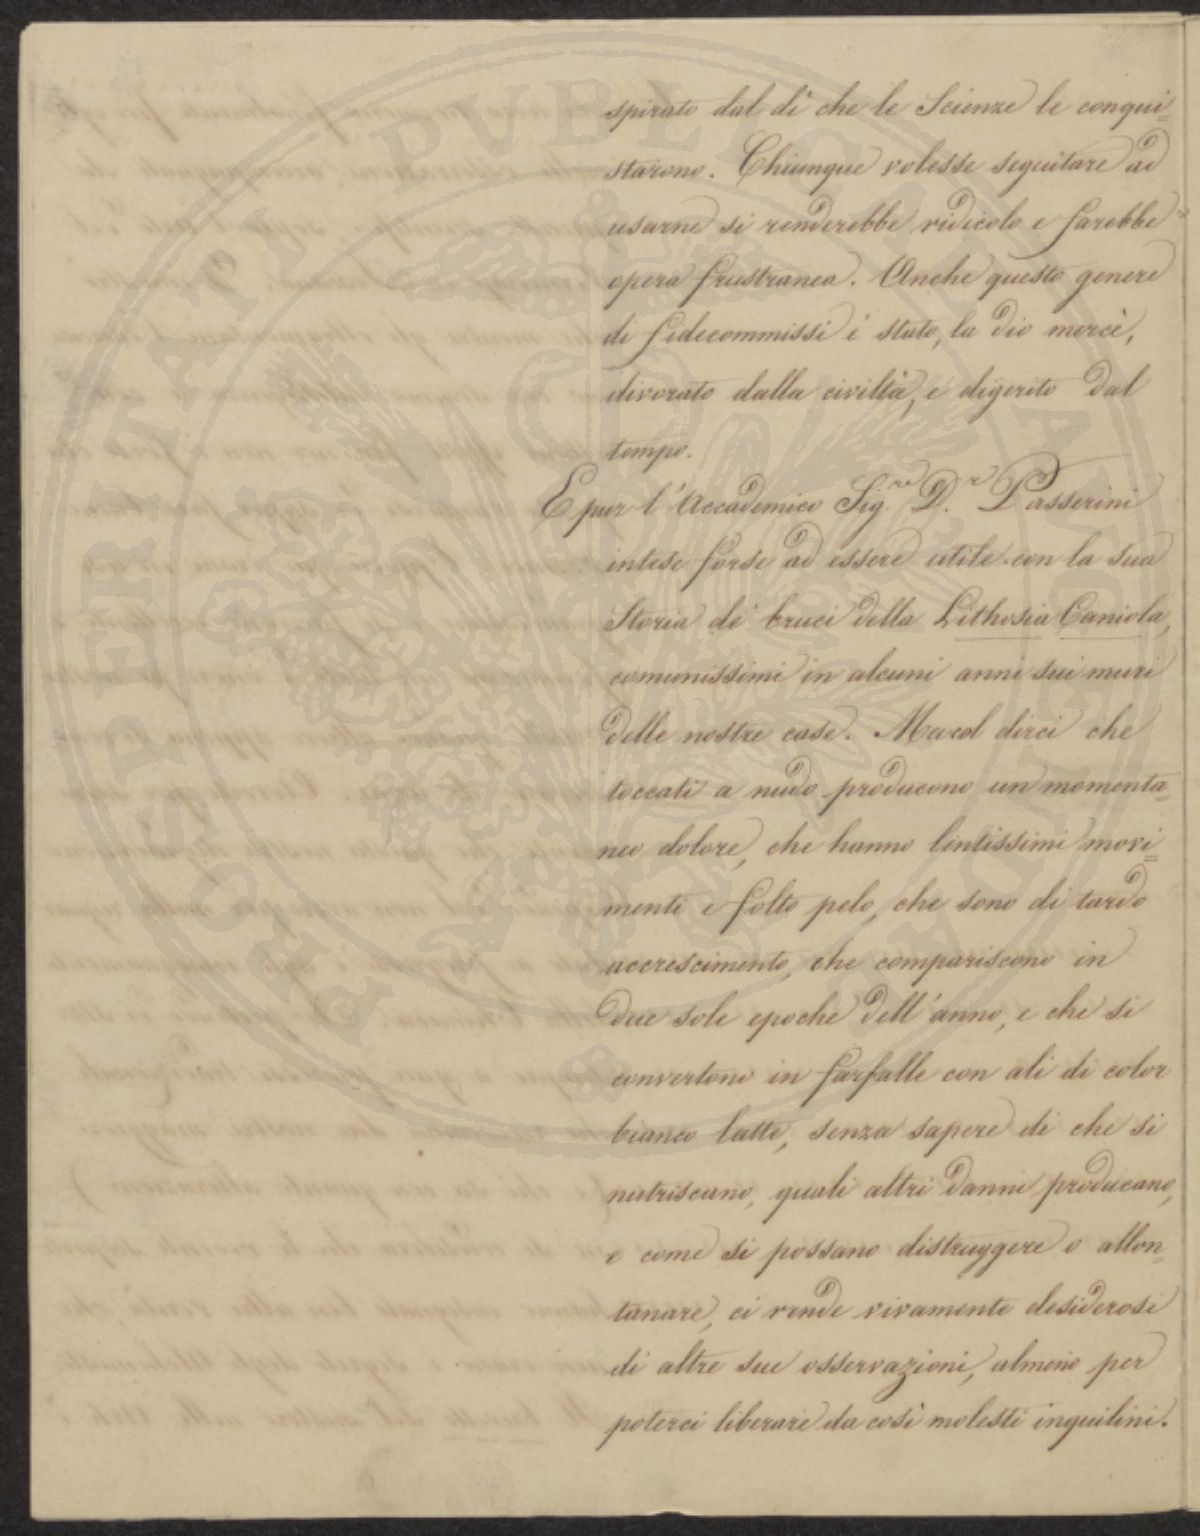 spirato dal dì che le Scienze le conqui=
starono. Chiunque volesse seguitare ad
usarne si renderebbe ridicolo e farebbe
opera frustranea. Anche questo genere
di fidecommissi è stato, la dio mercè,
divorato dalla civiltà, e digerito dal
tempo.
E pur l'Accademico Sig.re D.r Passerini
intese forse ad essere utile con la sua
Storia de' bruci della Lithosia Caniola,
comunissimi in alcuni anni sui muri
delle nostre case. Ma col dirci che
toccati a nudo producono un momenta=
neo dolore, che hanno lentissimi movi=
menti e folto pelo, che sono di tardo
accrescimento, che compariscono in
due sole epoche dell'anno, e che si
convertono in farfalle con ali di color
bianco latte, senza sapere di che si
nutriscano, quali altri danni producano,
e come si possano distruggere o allon=
tanare, ci rende vivamente desiderosi
di altre sue osservazioni, almeno per
poterci liberare da così molesti inquilini.
PUBLICAE
PROSPERITATI